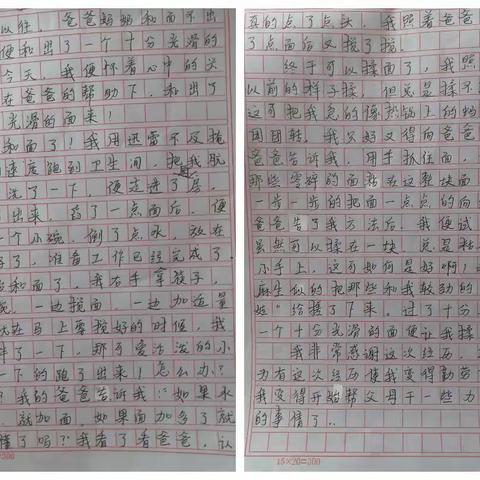 以往，爸爸妈妈和面不出
便和出了一个十分光滑的
今天，我便怀着心中的
在爸爸的帮助下，和出了
光滑的面来！
和面了！我用迅雷不及掩
速度跑到卫生间，把我脱
洗了一下，便走进了
出来，药了一点面后，便
一个小碗，倒了点水，放在
了，准备工作已经完成了
和面了，我右手拿筷子，
一边搅面，一边加适量
在马上要搅好的时候，我
了一下，那可爱活泼的小
下的跑了出来！怎么办？
？我的爸爸告诉我："如果水
就加面，如果面加多了就
懂了吗？"我看了看爸爸，认
真的点了点头，我照着爸爸
了点面后又搅了搅。
终于可以揉面了，我照
以前的样子揉，但总是揉不
这可把我急的像热锅上的蚂
团团转。我只好又得向爸爸
爸爸告诉我，用手抓住面，
那些零碎的面粘在这整块面
一步一步的把面一点点的向
爸爸告了我方法后，我便试
虽然可以揉在一块，总是粘
小手上，这可如何是好啊！
麻生似的把那些和我较劲的
给搓了下来，过了十分
一个十分光滑的面便让我揉
我非常感谢这次经历，
为有这次经历使我变得勤劳
我变得开始帮父母干一些力
的事情了..
15×20=300